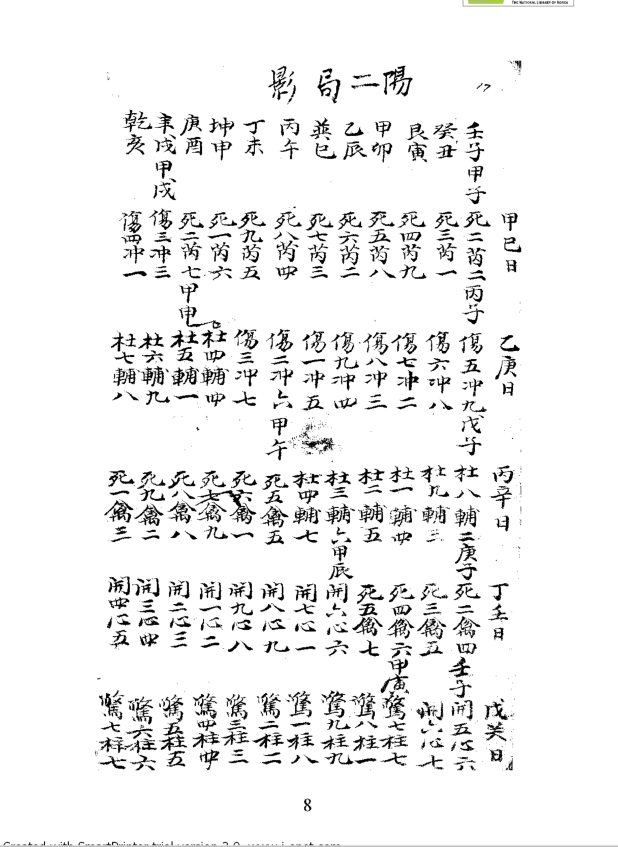 THE NATIONAL LIBRARY OF KOREA
17
陽二局影
壬子甲子
癸丑
艮寅
甲卯
乙辰
巽巳
丙午
丁未
坤申
庚酉
辛戌甲戌
乾亥
甲巳日
死二芮二丙子
死三芮一
死四芮九
死五芮八
死六芮二
死七芮三
死八芮四
死九芮五
死一芮六
死二芮七甲申
傷三冲三
傷四冲一
乙庚日
傷五冲九戊子
傷六冲八
傷七冲二
傷八冲三
傷九冲四
傷一冲五
傷二冲六甲午
傷三冲七
杜四輔四
杜五輔一
杜六輔九
杜七輔八
丙辛日
杜八輔二庚子
杜九輔三
杜一輔四
杜二輔五
杜三輔六甲辰
杜四輔七
死五禽五
死六禽一
死七禽九
死八禽八
死九禽二
死一禽三
丁壬日
死二禽四壬子
死三禽五
死四禽六甲寅
死五禽七
開六心六
開七心一
開八心九
開九心八
開一心二
開二心三
開三心四
開四心五
戊癸日
開五心六
開六心七
驚七柱七
驚八柱一
驚九柱九
驚一柱八
驚二柱二
驚三柱三
驚四柱四
驚五柱五
驚六柱六
驚七柱七
8